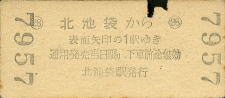 北池袋から
表面矢印の1駅ゆき
通用発売当日限 下車前途無効
北池袋駅発行
7957
7957